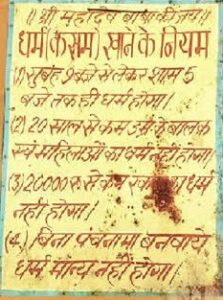 ॥ श्री महादेव बाबा की जय ॥
धर्म (कसम) खाने के नियम
(1) सुबह 9 बजे से लेकर शाम 5
बजे तक ही धर्म होगा।
(2) 20 साल से कम उम्र के बालक
एवं महिलाओं का धर्म नही होगा।
(3) 20000 रु. से कम का धर्म
नही होगा।
(4) बिना पंचनामा बनवाये
धर्म मान्य नही होगा।